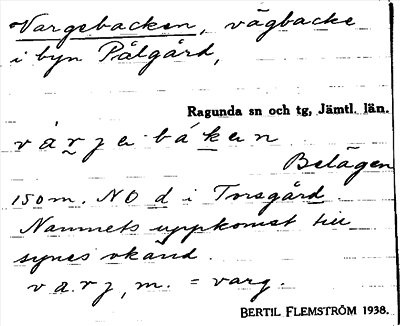 Vargebacken, vägbacke
i byn Pålgård,
Ragunda sn och tg, Jämtl. län.
várje-báken
Belägen
150 m. NO d i Torsgård
Namnets uppkomst till
synes okänd.
varj, m. = varg.
BERTIL FLEMSTRÖM 1938.